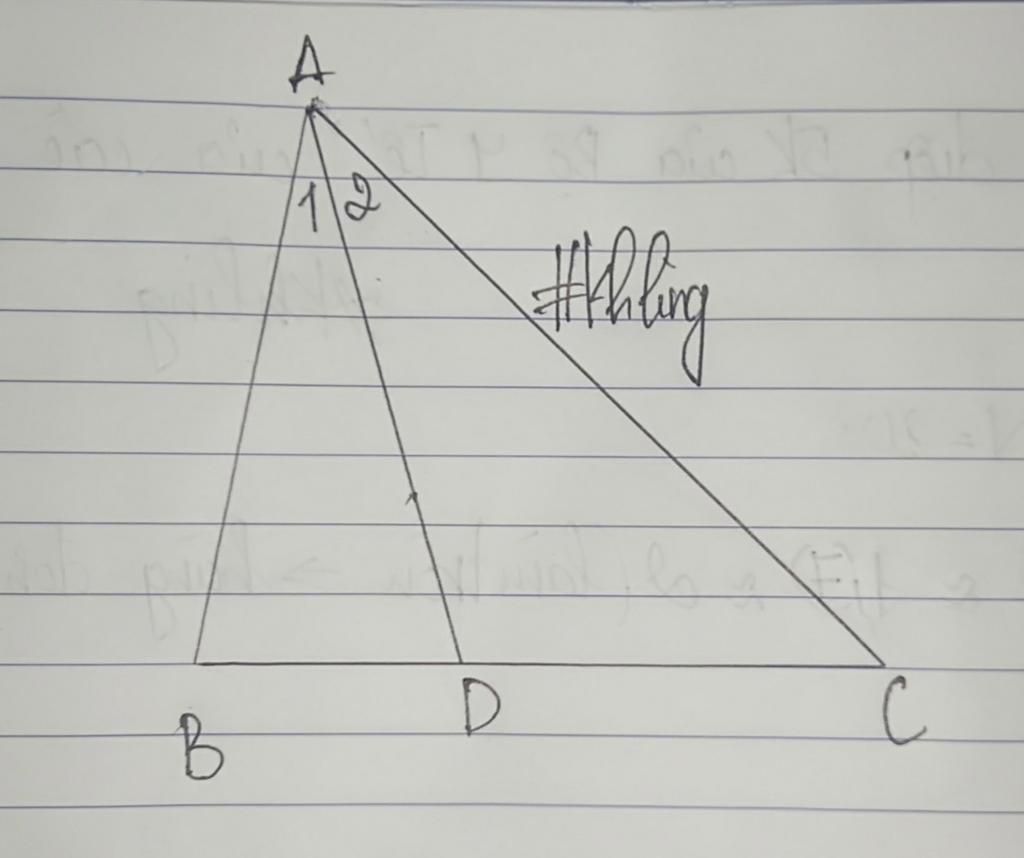 A
1 2
#khling
B D C